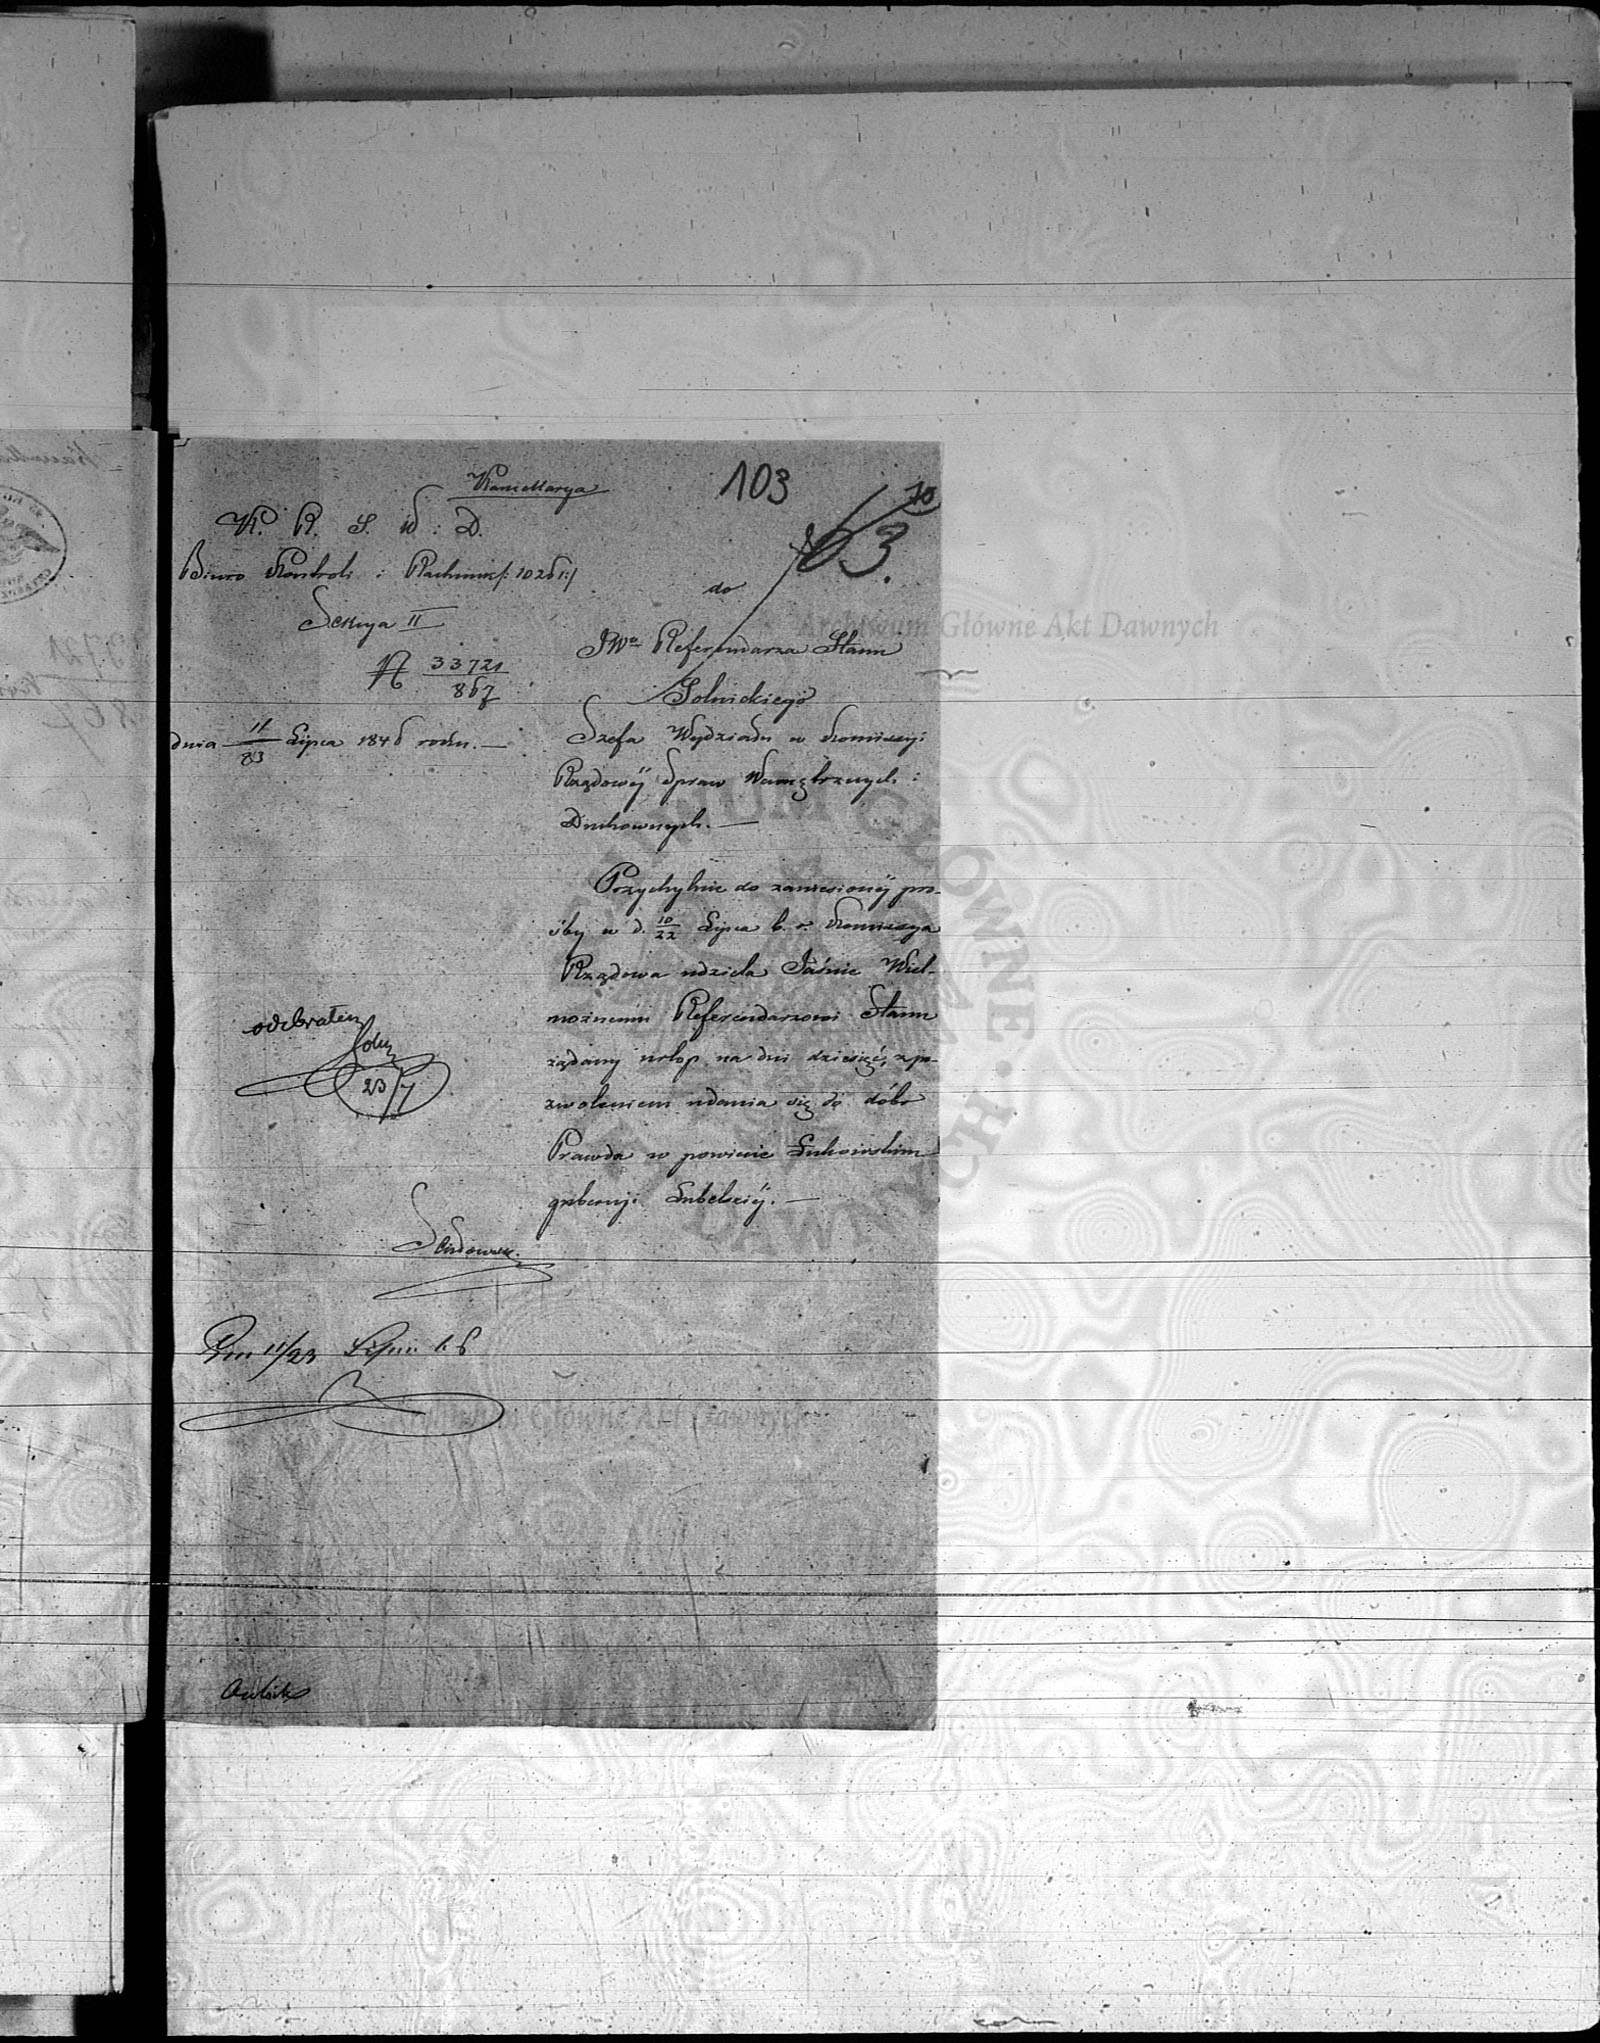 Kancellarya
103
K. R. S. W: D.
Biuro Kontroli i Rachunk/:
Sekcya II
N 33721
867
dnia 11/23 Lipca 1846 roku. —
do
JWo Referendarza Stanu
Solnickiego
Szefa Wydziału w Kommissyi
Rządowéj Spraw Wewnętrznych i
Duchownych. —
Przychylnie do zaniesionéj pro-
śby w d. 10/22 Lipca b. r. Kommissya
Rządowa udziela Jaśnie Wiel-
możnemu Referendarzowi Stanu
żądany urlop na dni dziesięć, z po-
zwoleniem udania się do dóbr
Prawda w powiecie Łukowskim
gubernji Lubelskiéj. —
odebrałem
23/7
Dnia 11/23 Lipca
Archiwum Główne Akt Dawnych
Archiwum Główne Akt Dawnych
ARCHIWUM GŁÓWNE AKT DAWNYCH